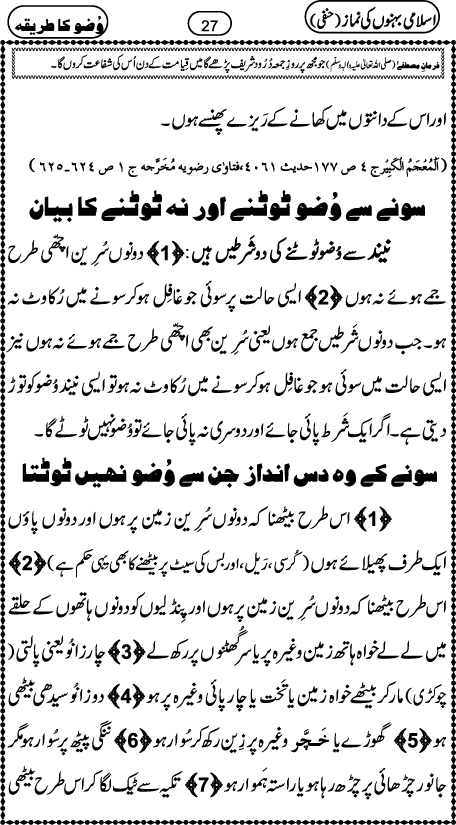 اسلامی بہنوں کی نماز (حنفی)
27
وُضو کا طریقہ
فرمانِ مصطفےٰ (صلی اللہ تعالیٰ علیہ واٰلہ وسلم) جو مجھ پر روزِ جمعہ دُرُود شریف پڑھے گا میں قیامت کے دن اُس کی شفاعت کروں گا۔
اور اس کے دانتوں میں کھانے کے رَیزے پھنسے ہوں۔
(اَلْمُعْجَمُ الْکَبِیْر ج ۴ ص ۱۷۷ حدیث ۴۰۶۱، فتاوٰی رضویہ مُخَرَّجہ ج ۱ ص ۶۲۴۔۶۲۵)
سونے سے وُضو ٹوٹنے اور نہ ٹوٹنے کا بیان
نیند سے وُضو ٹوٹنے کی دو شَرطیں ہیں: ﴿1﴾ دونوں سُرِین اچّھی طرح
جمے ہوئے نہ ہوں ﴿2﴾ ایسی حالت پر سوئی جو غافِل ہو کر سونے میں رُکاوٹ نہ
ہو۔ جب دونوں شَرطیں جمع ہوں یعنی سُرِین بھی اچّھی طرح جمے ہوئے نہ ہوں نیز
ایسی حالت میں سوئی ہو جو غافِل ہو کر سونے میں رُکاوٹ نہ ہو تو ایسی نیند وُضو کو توڑ
دیتی ہے۔ اگر ایک شَرط پائی جائے اور دوسری نہ پائی جائے تو وُضو نہیں ٹوٹے گا۔
سونے کے وہ دس انداز جن سے وُضو نہیں ٹوٹتا
﴿1﴾ اس طرح بیٹھنا کہ دونوں سُرِین زمین پر ہوں اور دونوں پاؤں
ایک طرف پھیلائے ہوں (کُرسی، رَیل، اور بس کی سیٹ پر بیٹھنے کا بھی یِہی حکم ہے) ﴿2﴾
اس طرح بیٹھنا کہ دونوں سُرِین زمین پر ہوں اور پِنڈلیوں کو دونوں ہاتھوں کے حلقے
میں لے لے خواہ ہاتھ زمین وغیرہ پر یا سر گُھٹنوں پر رکھ لے ﴿3﴾ چار زانو یعنی پالتی (
چوکڑی) مار کر بیٹھے خواہ زمین یا تَخت یا چارپائی وغیرہ پر ہو ﴿4﴾ دو زانو سیدھی بیٹھی
ہو ﴿5﴾ گھوڑے یا خَچَّر وغیرہ پر زِین رکھ کر سُوار ہو ﴿6﴾ ننگی پیٹھ پر سُوار ہو مگر
جانور چڑھائی پر چڑھ رہا ہو یا راستہ ہَموار ہو ﴿7﴾ تکیہ سے ٹیک لگا کر اس طرح بیٹھی